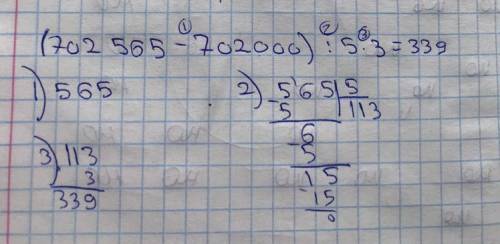 ① ② ③
(702 565 - 702000) : 5 · 3 = 339
1) 565
2) - 565 | 5
5 | 113
- 6
5
15
- 15
0
3) . 113
3
339